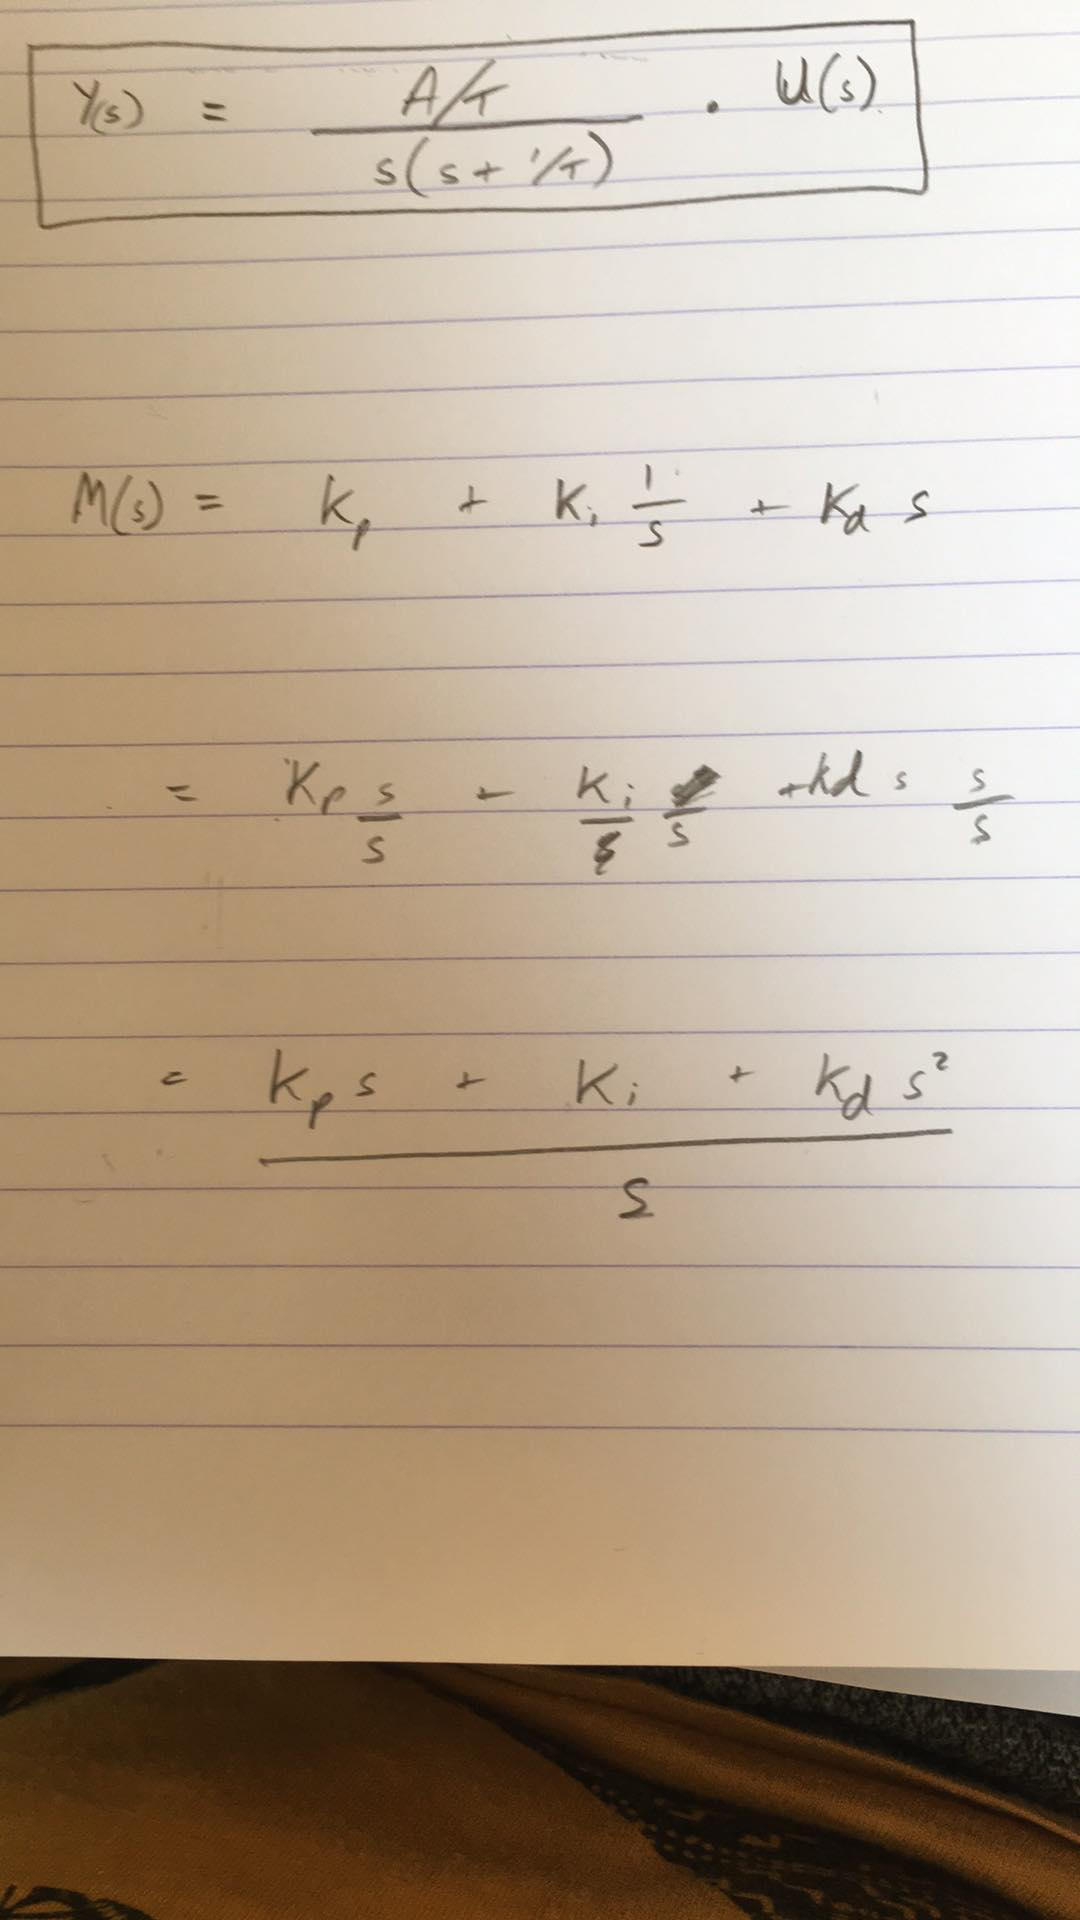 Y(s) = A/T / s(s + 1/T) · U(s)
M(s) = Kp + Ki 1/s + Kd s
= Kp s/s + Ki/s + Kd s s/s
= Kp s + Ki + Kd s² / s